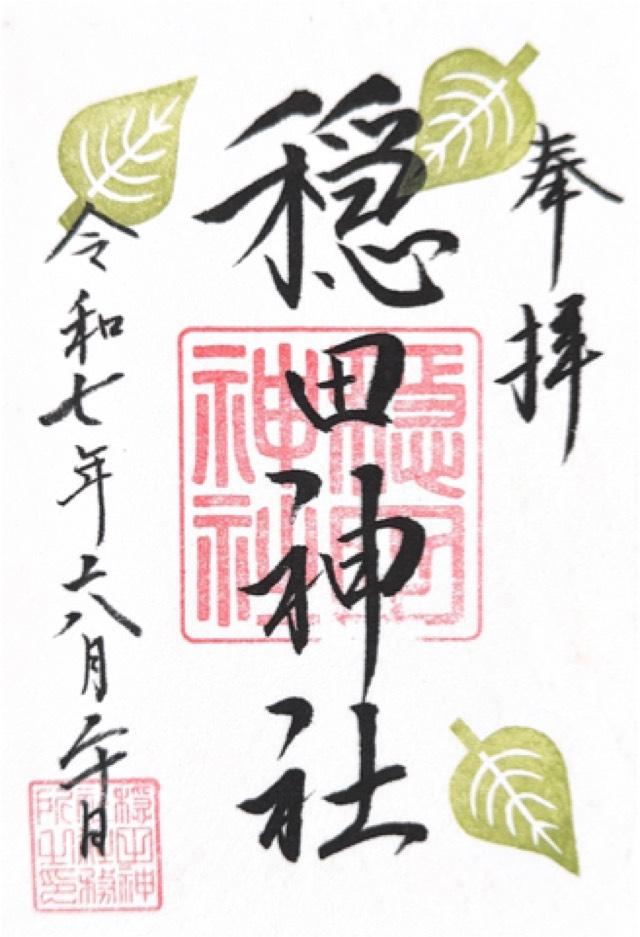 奉拝
穏田神社
令和七年六月二十日
穏田神社
穏田神社務所之印